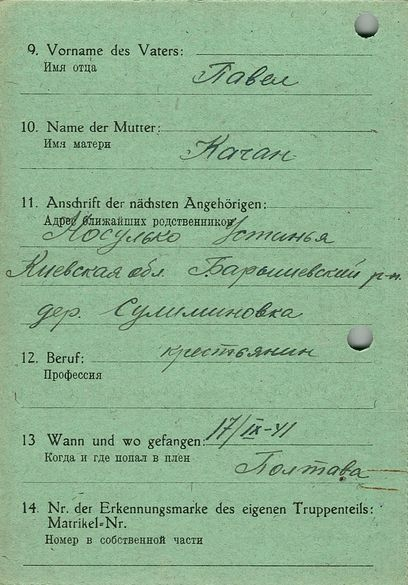 9. Vorname des Vaters:
Имя отца
Павел
10. Name der Mutter:
Имя матери
Качан
11. Anschrift der nächsten Angehörigen:
Адрес ближайших родственников
Косулько Устинья
Киевская обл. Барышевский р-н.
дер. Сулиминовка
12. Beruf: крестьянин
Профессия
13 Wann und wo gefangen: 17/IX-41
Когда и где попал в плен
Полтава
14. Nr. der Erkennungsmarke des eigenen Truppenteils:
Matrikel=Nr.
Номер в собственной части